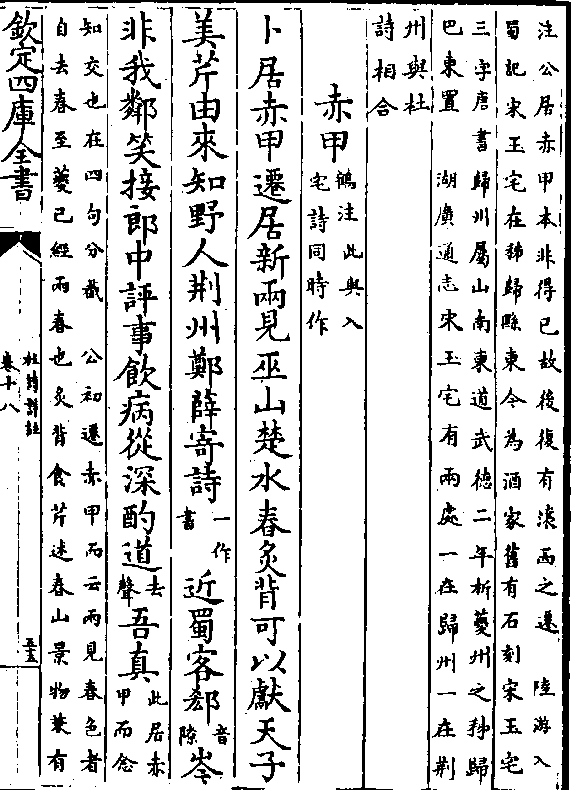 注公居赤甲本非得已故後復有瀼西之遷　陸游入
蜀記宋玉宅在秭歸縣東今為酒家舊有石刻宋玉宅
三字唐書歸州屬山南東道武德二年析夔州之秭歸
巴東置　湖廣通志宋玉宅有兩處一在歸州一在荆
州與杜
詩相合
赤甲鶴注此與入宅詩同時作
卜居赤甲遷居新兩見巫山楚水春炙背可以獻天子
美芹由來知野人荆州鄭薛寄詩一作書近蜀客郄音隙岑
非我鄰笑接郎中評事飲病從深酌道去聲吾真此居赤甲而念
知交也在四句分截　公初遷赤甲而云兩見春色者
自去春至夔已經兩春也炙背食芹述春山景物葉有
欽定四庫全書
杜詩詳註
卷十八
五十五